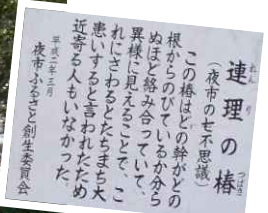 れんり
連理の椿
つばき
(夜市の七不思議)
この椿はどの幹がどの
根からのびているか分ら
ぬほど絡み合っていて、
異様に見えることで、こ
れにさわるとたちまち大
患いすると言われたため
近寄る人もいなかった。
平成二年三月
夜市ふるさと創生委員会